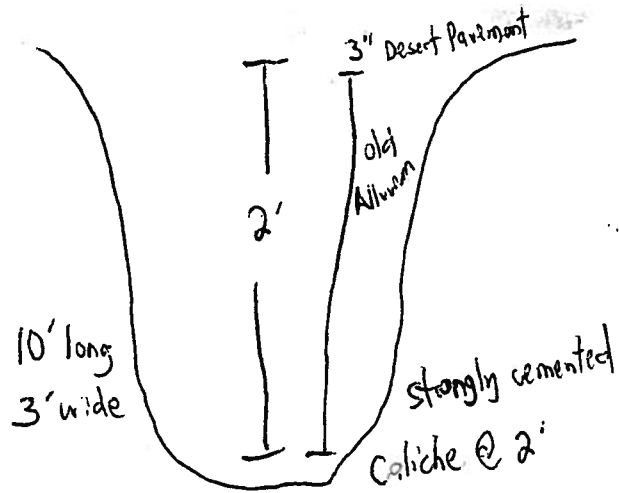 3" Desert Pavement
old
Alluvium
2'
10' long
3' wide
strongly cemented
Caliche @ 2'